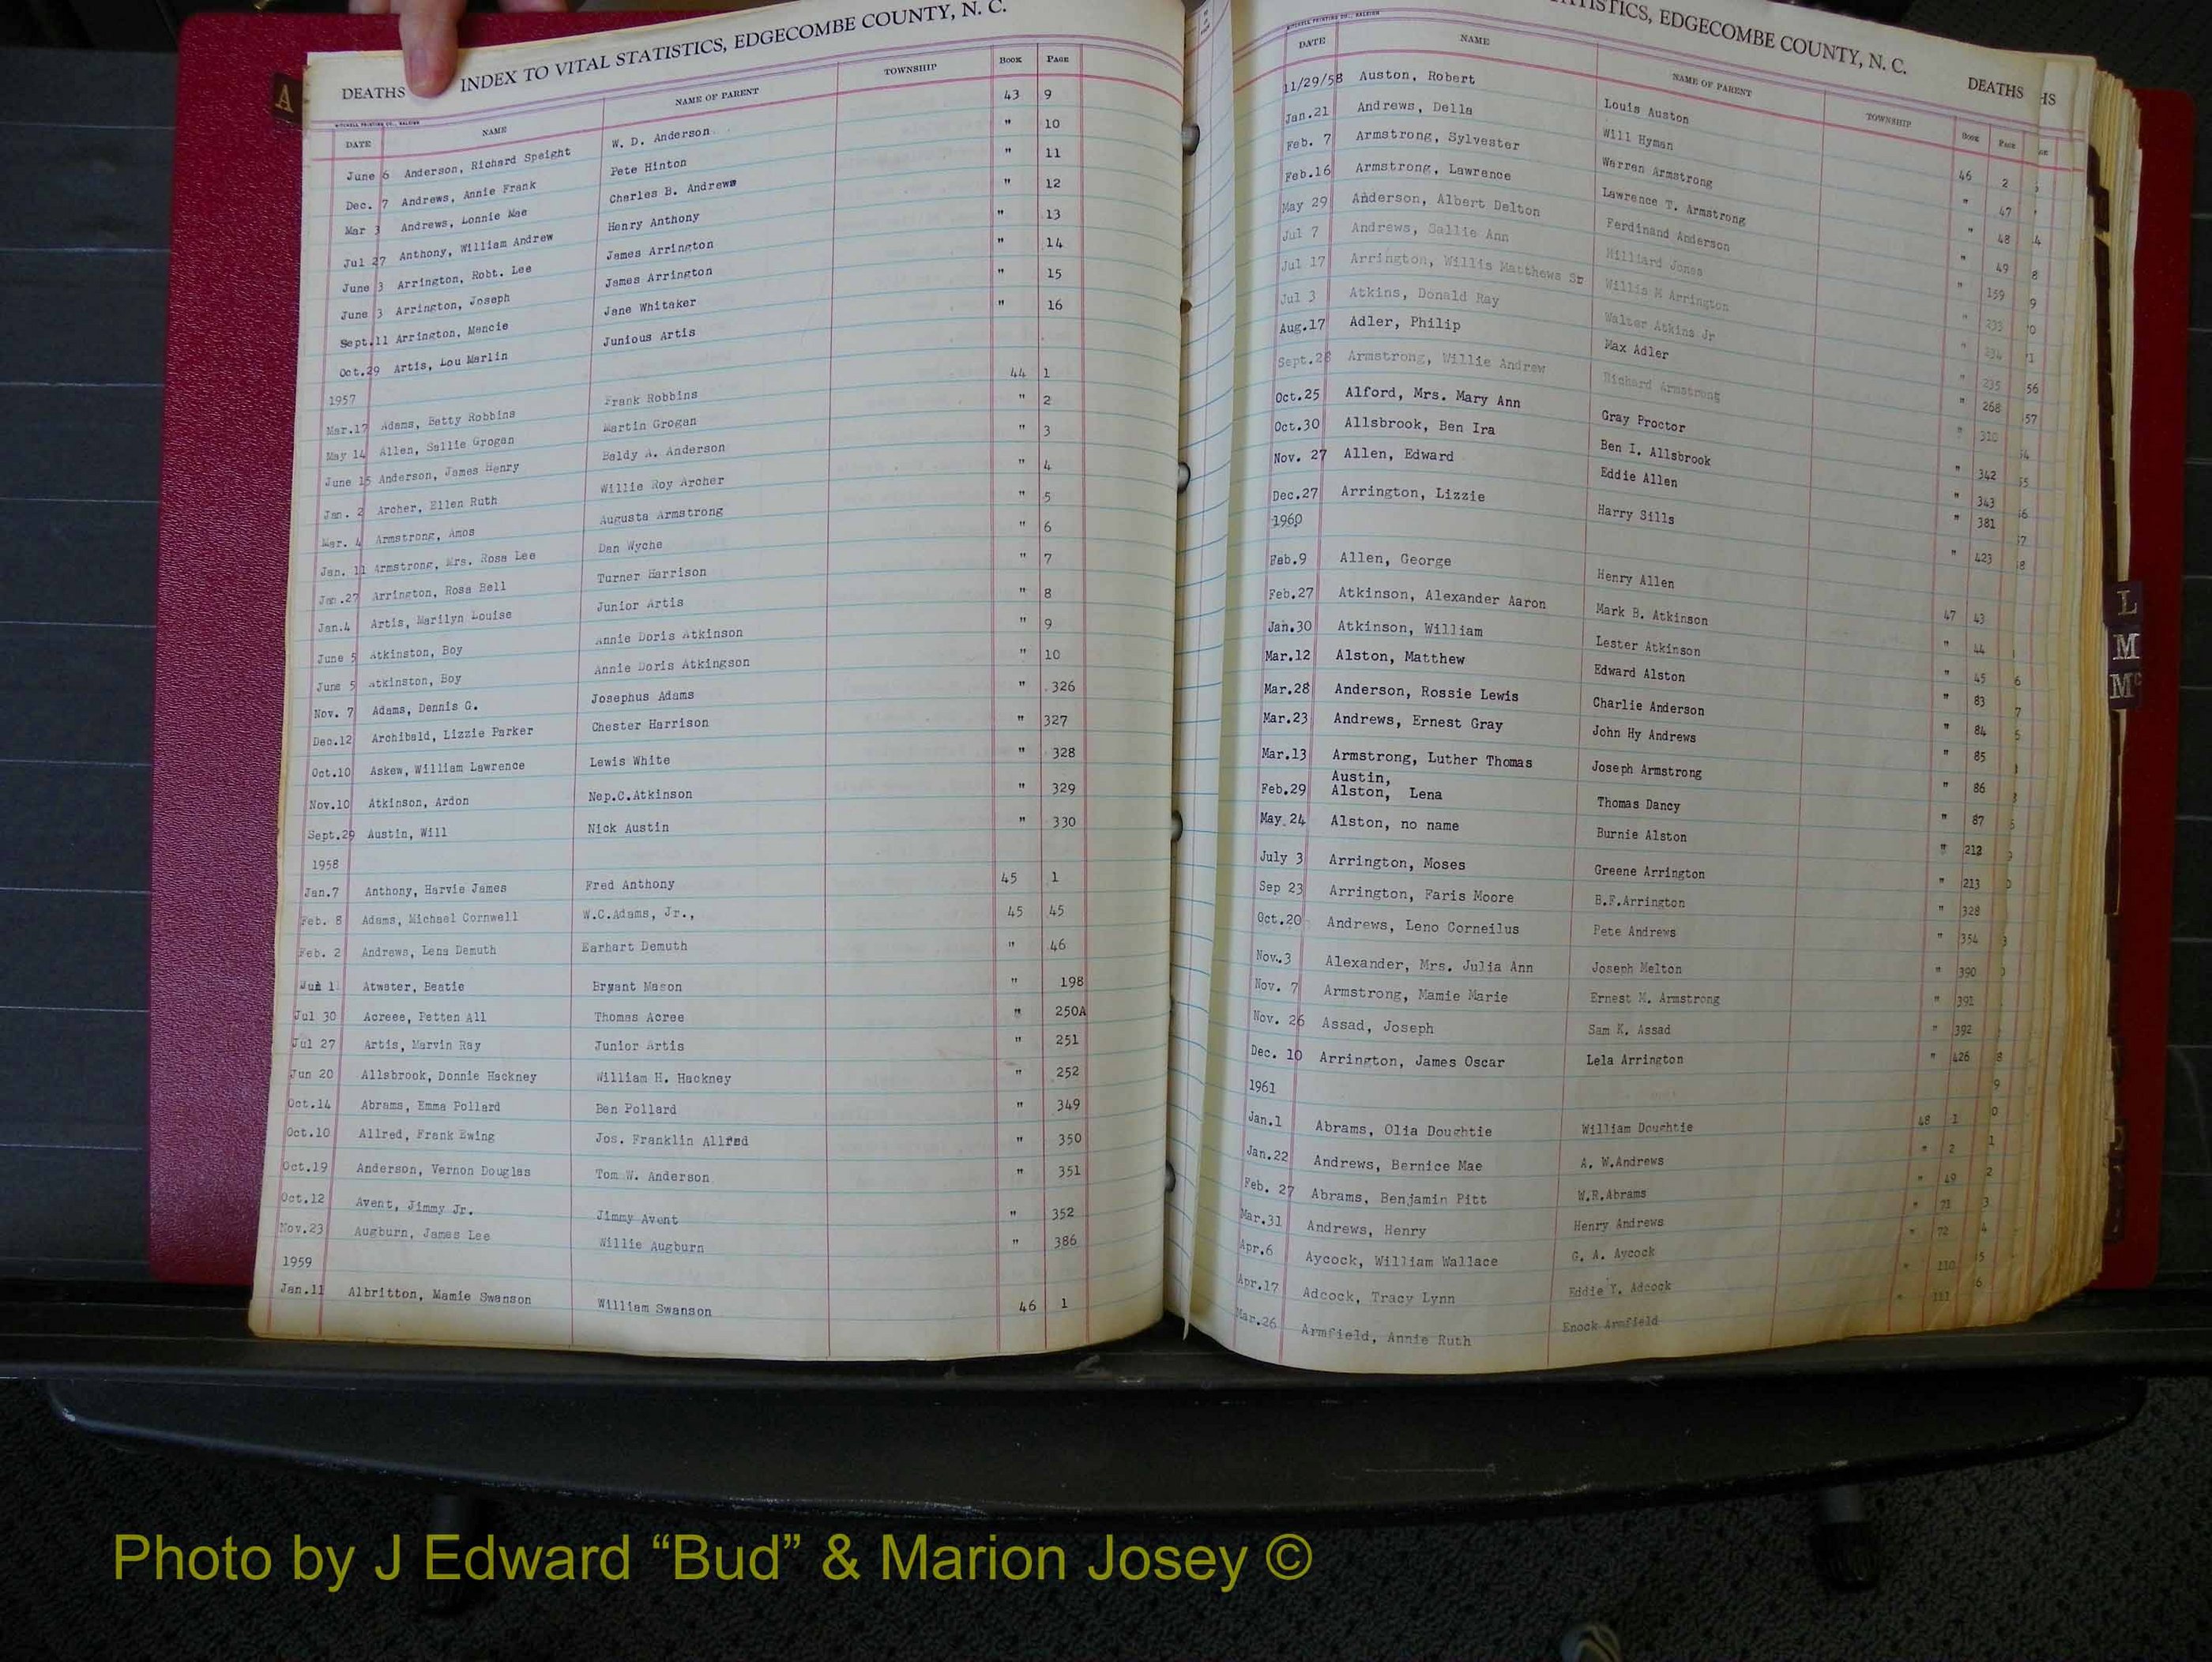 A
DEATHS INDEX TO VITAL STATISTICS, EDGECOMBE COUNTY, N. C.
MITCHELL PRINTING CO., RALEIGH
DATE NAME NAME OF PARENT TOWNSHIP BOOK PAGE
June 6 Anderson, Richard Speight W. D. Anderson 43 9
Dec. 7 Andrews, Annie Frank Pete Hinton " 10
Mar 3 Andrews, Lonnie Mae Charles B. Andrews " 11
Jul 27 Anthony, William Andrew Henry Anthony " 12
June 3 Arrington, Robt. Lee James Arrington " 13
June 3 Arrington, Joseph James Arrington " 14
Sept.11 Arrington, Mencie Jane Whitaker " 15
Oct.29 Artis, Lou Marlin Junious Artis " 16
1957
Mar.17 Adams, Betty Robbins Frank Robbins 44 1
May 14 Allen, Sallie Grogan Martin Grogan " 2
June 15 Anderson, James Henry Baldy A. Anderson " 3
Jan. 2 Archer, Ellen Ruth Willie Roy Archer " 4
Mar. 4 Armstrong, Amos Augusta Armstrong " 5
Jan. 11 Armstrong, Mrs. Rosa Lee Dan Wyche " 6
Jan.27 Arrington, Rosa Bell Turner Harrison " 7
Jan.4 Artis, Marilyn Louise Junior Artis " 8
June 5 Atkinston, Boy Annie Doris Atkinson " 9
June 5 Atkinston, Boy Annie Doris Atkingson " 10
Nov. 7 Adams, Dennis G. Josephus Adams " 326
Dec.12 Archibald, Lizzie Parker Chester Harrison " 327
Oct.10 Askew, William Lawrence Lewis White " 328
Nov.10 Atkinson, Ardon Nep.C.Atkinson " 329
Sept.29 Austin, Will Nick Austin " 330
1958
Jan.7 Anthony, Harvie James Fred Anthony 45 1
Feb. 8 Adams, Michael Cornwell W.C.Adams, Jr., 45 45
Feb. 2 Andrews, Lena Demuth Earhart Demuth " 46
Jun 1 Atwater, Beatie Bryant Mason " 198
Jul 30 Acreee, Petten All Thomas Acree " 250A
Jul 27 Artis, Marvin Ray Junior Artis " 251
Jun 20 Allsbrook, Donnie Hackney William H. Hackney " 252
Oct.14 Abrams, Emma Pollard Ben Pollard " 349
Oct.10 Allred, Frank Ewing Jos. Franklin Allred " 350
Oct.19 Anderson, Vernon Douglas Tom W. Anderson " 351
Oct.12 Avent, Jimmy Jr. Jimmy Avent " 352
Nov.23 Augburn, James Lee Willie Augburn " 386
1959
Jan.11 Albritton, Mamie Swanson William Swanson 46 1
STATISTICS, EDGECOMBE COUNTY, N. C. DEATHS
MITCHELL PRINTING CO., RALEIGH
DATE NAME NAME OF PARENT TOWNSHIP BOOK PAGE
11/29/58 Auston, Robert Louis Auston 46 2
Jan.21 Andrews, Della Will Hyman " 47
Feb. 7 Armstrong, Sylvester Warren Armstrong " 48
Feb.16 Armstrong, Lawrence Lawrence T. Armstrong " 49
May 29 Anderson, Albert Delton Ferdinand Anderson " 159
Jul 7 Andrews, Sallie Ann Hilliard Jones " 233
Jul 17 Arrington, Willis Matthews Sr Willis M Arrington " 234
Jul 3 Atkins, Donald Ray Walter Atkins Jr " 235
Aug.17 Adler, Philip Max Adler " 268
Sept.28 Armstrong, Willie Andrew Richard Armstrong " 310
Oct.25 Alford, Mrs. Mary Ann Gray Proctor " 342
Oct.30 Allsbrook, Ben Ira Ben I. Allsbrook " 343
Nov. 27 Allen, Edward Eddie Allen " 381
Dec.27 Arrington, Lizzie Harry Sills " 423
1960
Feb.9 Allen, George Henry Allen 47 43
Feb.27 Atkinson, Alexander Aaron Mark B. Atkinson " 44
Jan.30 Atkinson, William Lester Atkinson " 45
Mar.12 Alston, Matthew Edward Alston " 83
Mar.28 Anderson, Rossie Lewis Charlie Anderson " 84
Mar.23 Andrews, Ernest Gray John Hy Andrews " 85
Mar.13 Armstrong, Luther Thomas Joseph Armstrong " 86
Austin,
Feb.29 Alston, Lena Thomas Dancy " 87
May.24 Alston, no name Burnie Alston " 212
July 3 Arrington, Moses Greene Arrington " 213
Sep 23 Arrington, Faris Moore B.F.Arrington " 328
Oct.20 Andrews, Leno Corneilus Pete Andrews " 354
Nov.3 Alexander, Mrs. Julia Ann Joseph Melton " 390
Nov. 7 Armstrong, Mamie Marie Ernest M. Armstrong " 391
Nov. 26 Assad, Joseph Sam K. Assad " 392
Dec. 10 Arrington, James Oscar Lela Arrington " 426
1961
Jan.1 Abrams, Olia Doughtie William Doughtie 48 1
Jan.22 Andrews, Bernice Mae A. W.Andrews " 2
Feb. 27 Abrams, Benjamin Pitt W.R.Abrams " 49
Mar.31 Andrews, Henry Henry Andrews " 71
Apr.6 Aycock, William Wallace G. A. Aycock " 72
Apr.17 Adcock, Tracy Lynn Eddie Y. Adcock " 110
Mar.26 Armfield, Annie Ruth Enock Armfield " 111
L
M
Mc
Photo by J Edward “Bud” & Marion Josey ©